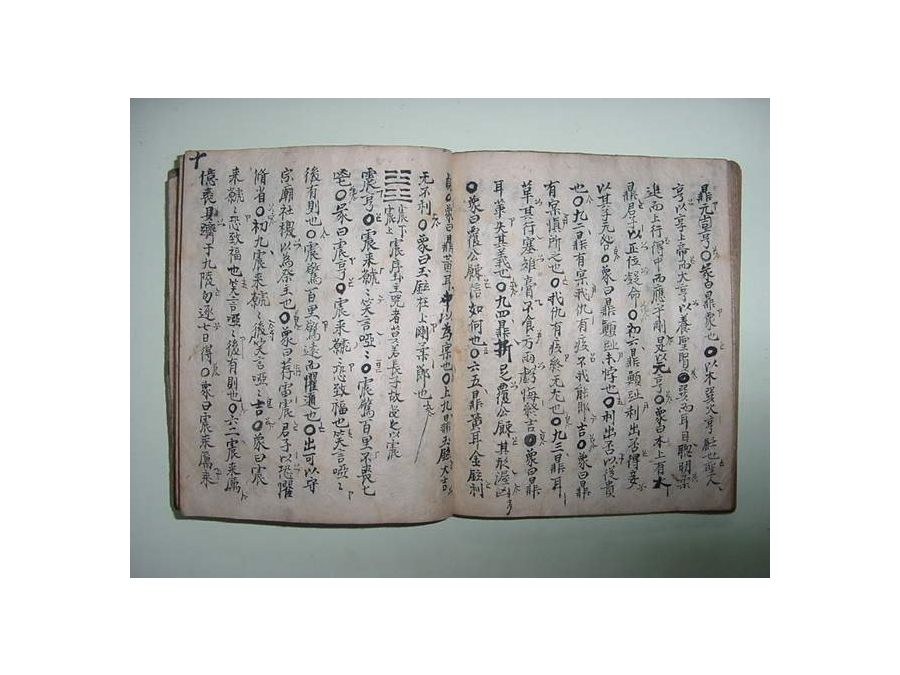 鼎元吉亨○彖曰鼎象也○以木巽火亨飪也聖人
亨以享上帝而大亨以養聖賢○巽而耳目聰明柔
進而上行得中而應乎剛是以元亨○象曰木上有火
鼎君子以正位凝命○初六鼎顚趾利出否得妾
以其子无咎○象曰鼎顚趾未悖也○利出否以從貴
也○九二鼎有宲我仇有疾不我能卽吉○象曰鼎
有宲愼所之也○我仇有疾終无尤也○九三鼎耳
革其行塞雉膏不食方雨虧悔終吉○象曰鼎
耳革失其義也○九四鼎折足覆公餗其形渥凶
○象曰覆公餗信如何也○六五鼎黃耳金鉉利
貞○象曰鼎黃耳中以為宲也○上九鼎玉鉉大吉
无不利○象曰玉鉉在上剛柔節也
十
震下震上 震序卦主器者莫若長子故受之以震
震亨○震来虩〻笑言啞〻○震驚百里不喪匕
鬯○彖曰震亨○震来虩〻恐致福也笑言啞〻
後有則也○震驚百里驚遠而懼邇也○出可以守
宗廟社稷以為祭主也○象曰荐雷震君子以恐懼
脩省○初九震来虩〻後笑言啞〻吉○象曰震
来虩〻恐致福也笑言啞〻後有則也○六二震来厲
億喪貝躋于九陵勿逐七日得○象曰震来厲乗